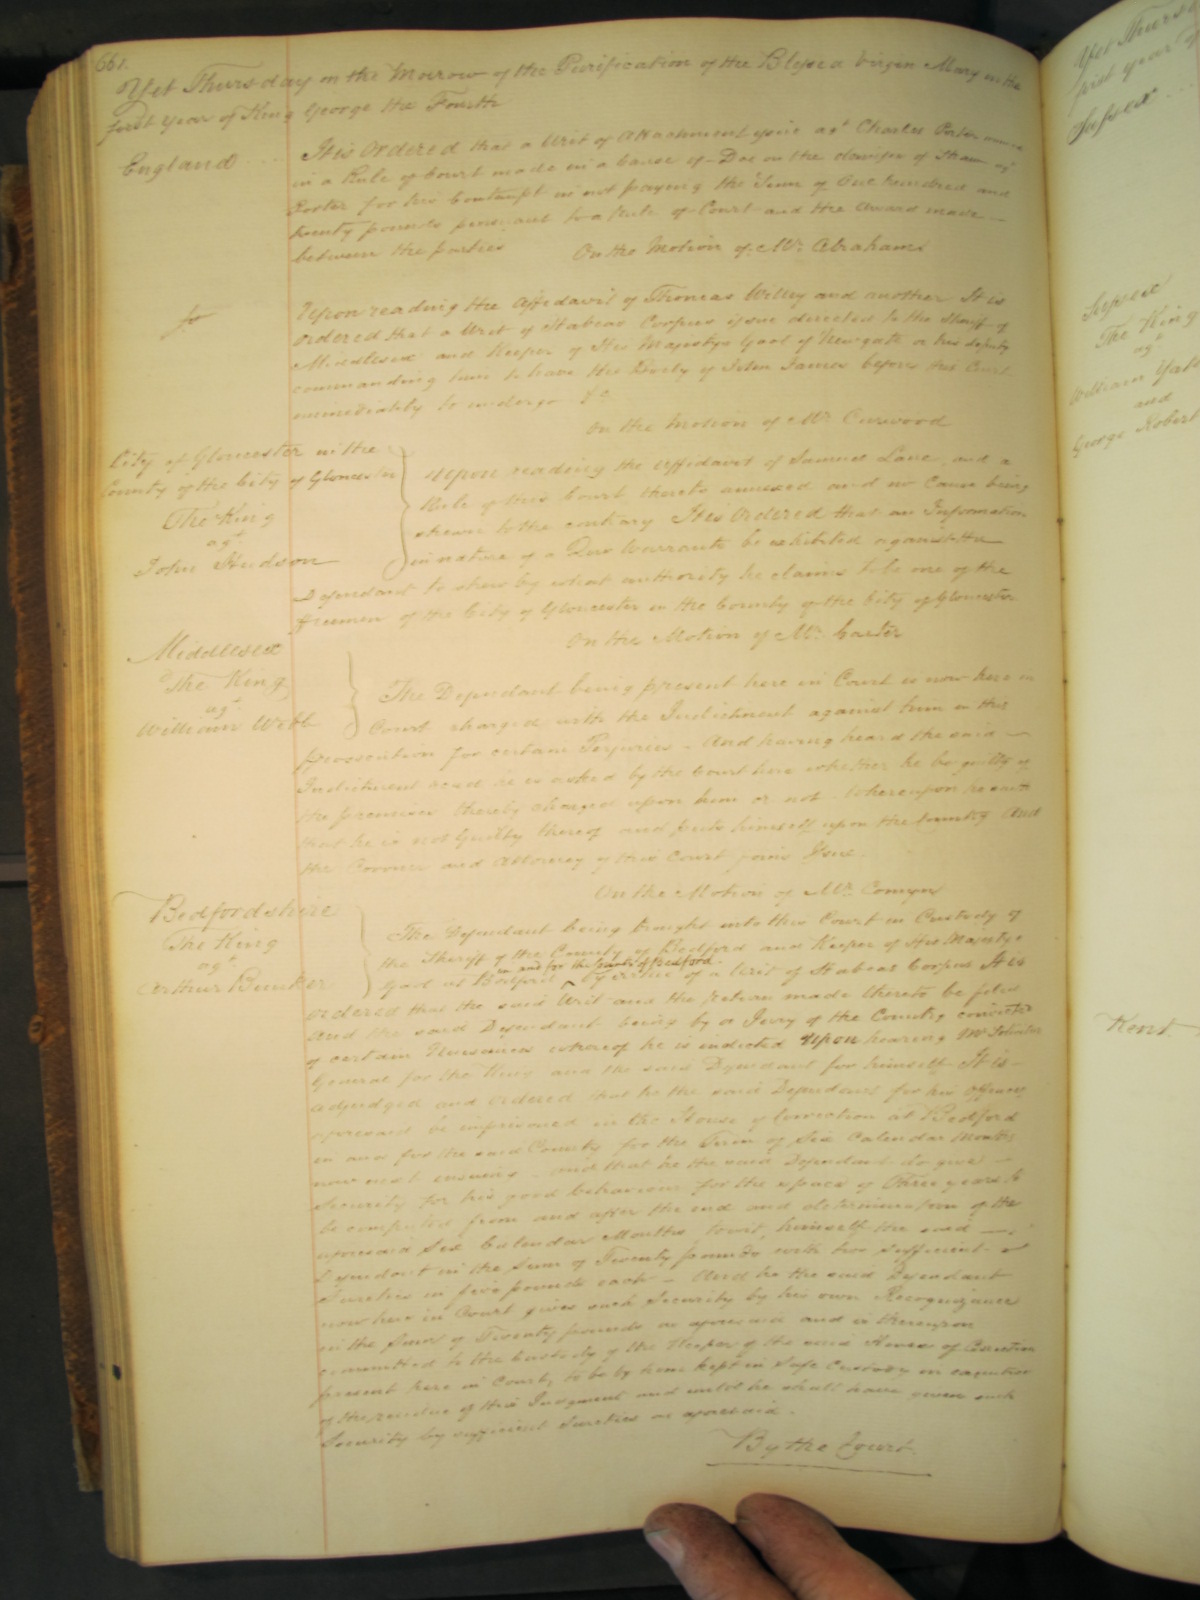 661.
Yet Thursday on the Morrow of the Purification of the Blessed Virgin Mary in the
first Year of King George the Fourth
England
It is Ordered that a Writ of Attachment issue agt Charles
in a Rule of Court made in a Cause of Doe on the demise of agt
for his Contempt in not paying the Sum of One hundred and
twenty pounds pursuant to a Rule of Court and the Award made
between the parties
On the Motion of Mr. Abraham
Upon reading the Affidavit of Thomas Willey and another It is
ordered that a Writ of Habeas Corpus issue directed to the Sheriff of
Middlesex and Keeper of His Majestys Gaol of Newgate or his deputy
commanding him to have the Body of John James before this Court
immediately to undergo &c
On the Motion of Mr. Curwood
City of Gloucester in the
County of the City of Gloucester
The King
agt
John Hudson
Upon reading the Affidavit of Samuel Lane and a
Rule of this Court thereto annexed and no Cause being
shewn to the contrary It is Ordered that an Information
in nature of a Quo Warranto be exhibited against the
Defendant to shew by what authority he claims to be one of the
freemen of the City of Gloucester in the County of the City of Gloucester
On the Motion of Mr. Carter
Middlesex
The King
agt
William Webb
The Defendant being present here in Court is now here in
Court charged with the Indictment against him in this
prosecution for certain Perjuries - And having heard the said
Indictment read he is asked by the Court here whether he be guilty of
the premises thereby charged upon him or not Whereupon he saith
that he is not Guilty thereof and puts himself upon the Country And
the Coroner and Attorney of this Court joins Issue.
On the Motion of Mr. Comyn
Bedfordshire
The King
agt
Arthur Bunker
The Defendant being brought into this Court in Custody of
the Sheriff of the County of Bedford and Keeper of His Majestys
in and for the County of Bedford
Gaol at Bedford ^ by virtue of a Writ of Habeas Corpus It is
ordered that the said Writ and the Return made thereto be filed
And the said Defendant being by a Jury of the Country convicted
of certain Nuisances whereof he is indicted Upon hearing Mr Solicitor
General for the King and the said Defendant for himself It is
adjudged and ordered that he the said Defendant for his Offences
aforesaid be imprisoned in the House of Correction at Bedford
in and for the said County for the Term of Six Calendar Months
now next ensuing - and that he the said Defendant do give
Security for his good behaviour for the space of Three years to
be computed from and after the end and determination of the
aforesaid Six Calendar Months towit, himself the said
Defendant in the Sum of Twenty pounds with two sufficient
Sureties in five pounds each - And he the said Defendant
now here in Court gives such Security by his own Recognizance
in the Sum of Twenty pounds as aforesaid and is thereupon
committed to the Custody of the Keeper of the said House of Correction
present here in Court, to be by him kept in safe Custody in execution
of the residue of this Judgment and until he shall have given such
Security by sufficient Sureties as aforesaid.
By the Court.
Yet Thursd
first year
Sussex
Sussex
The King
agt
William
and
George Robert
Kent